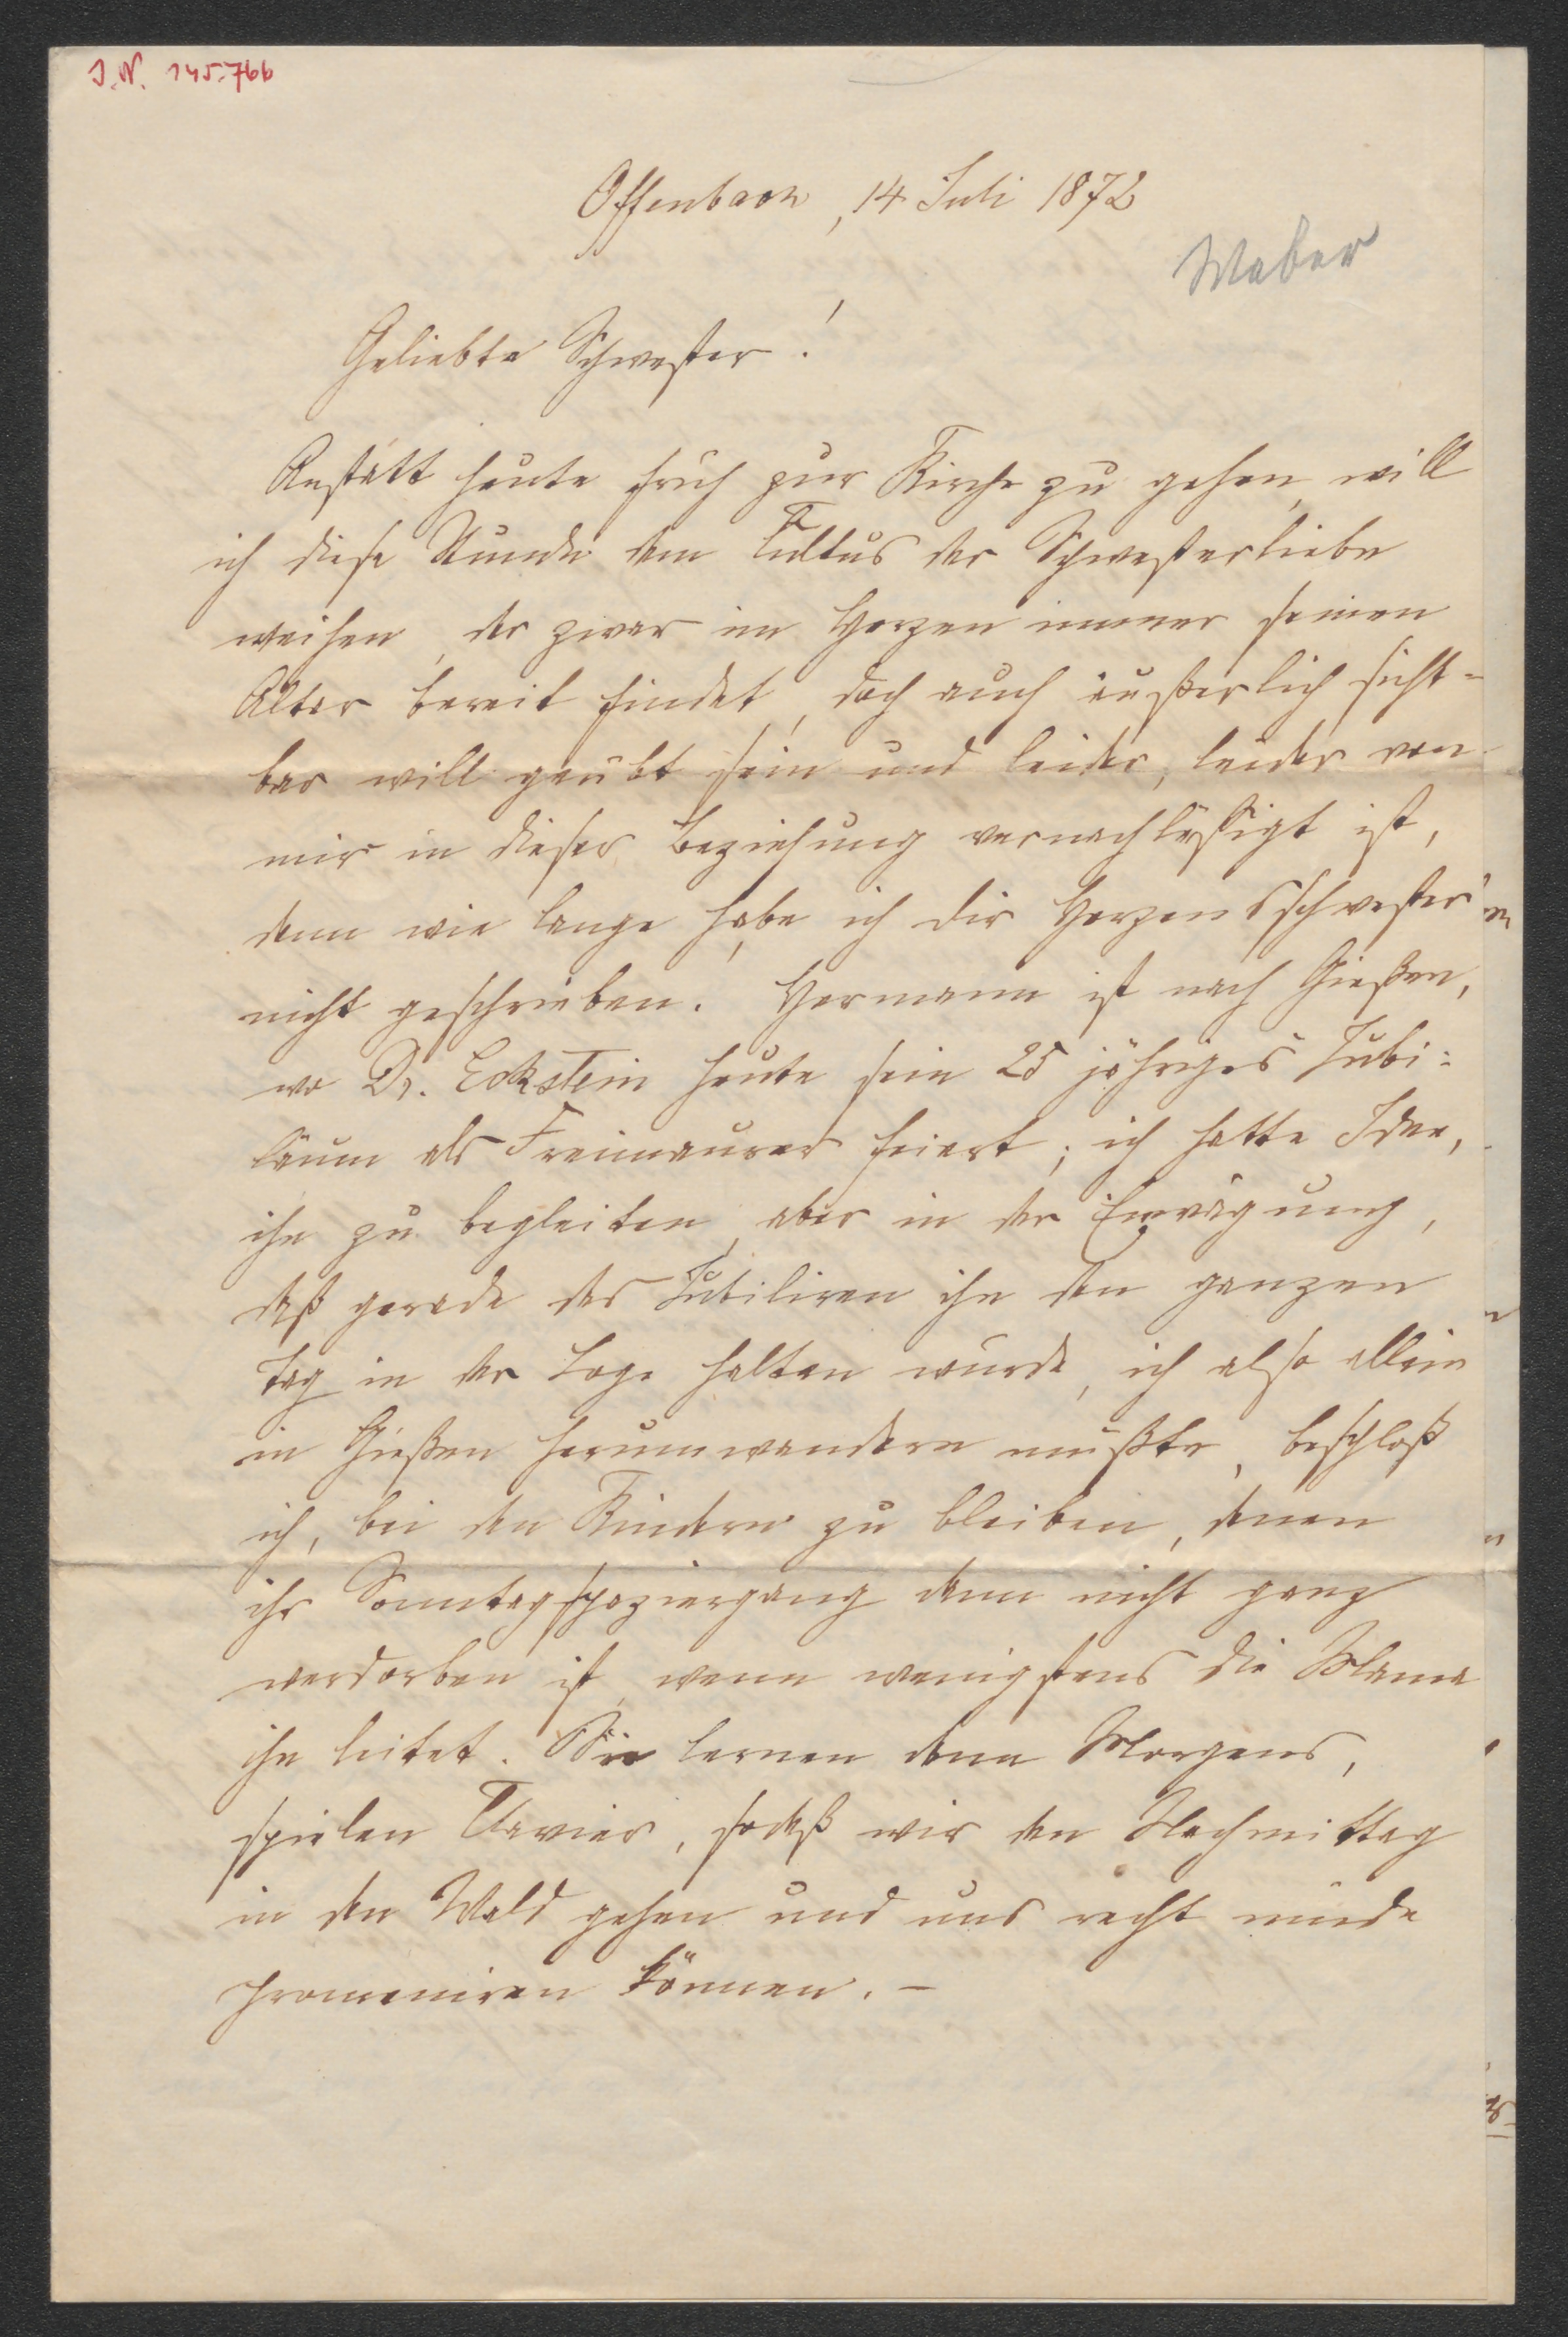 J.N. 145.766
Offenbach, 14 Juli 1872
Weber
Geliebte Schwester!
Anstatt heute früh zur Kirche zu gehen, will
ich diese Stunde dem Cultus der Schwesterliebe
weihen, der zwar im Herzen immer seinen
Altar bereit findet, doch auch äußerlich sicht-
bar will geübt sein und leider, leider von
mir in dieser Beziehung vernachläßigt ist,
denn wie lange habe ich dir Herzensschwester
nicht geschrieben. Hermann ist nach Gießen,
wo Dr. Eckstein heute sein 25 jähriges Jubi-
läum als Freimaurer feiert; ich hatte Idee,
ihn zu begleiten, aber in der Erwägung,
daß gerade das Jubiliren ihn den ganzen
Tag in der Loge halten würde, ich also allein
in Gießen herumwandern müßte, beschloß
ich, bei den Kindern zu bleiben, denen
ihr Sonntagsspaziergang dann nicht ganz
verdorben ist, wenn wenigstens die Mama
ihn leitet. Sie lernen dann Morgens,
spielen Clavier, sodaß wir den Nachmittag
in den Wald gehen und uns recht müde
promeniren können. –